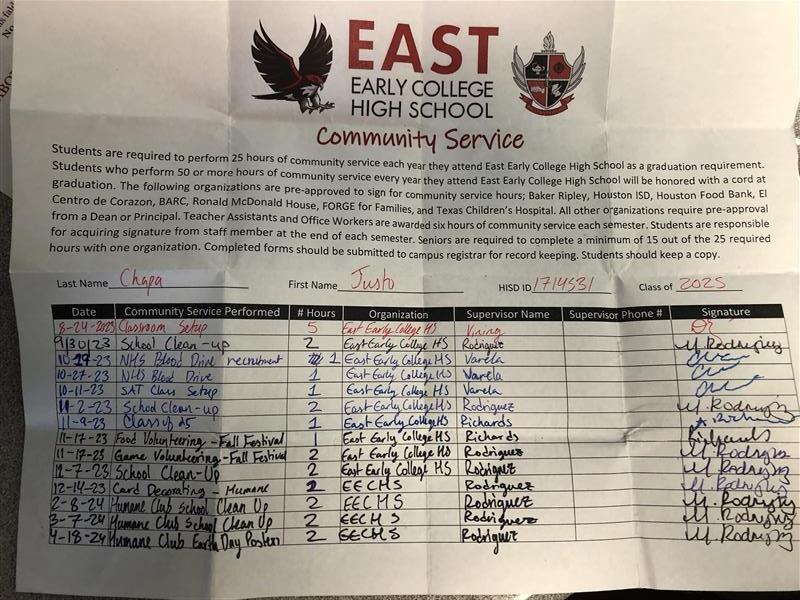 EAST
EARLY COLLEGE
HIGH SCHOOL
Community Service
Students are required to perform 25 hours of community service each year they attend East Early College High School as a graduation requirement.
Students who perform 50 or more hours of community service every year they attend East Early College High School will be honored with a cord at
graduation. The following organizations are pre-approved to sign for community service hours; Baker Ripley, Houston ISD, Houston Food Bank, El
Centro de Corazon, BARC, Ronald McDonald House, FORGE for Families, and Texas Children's Hospital. All other organizations require pre-approval
from a Dean or Principal. Teacher Assistants and Office Workers are awarded six hours of community service each semester. Students are responsible
for acquiring signature from staff member at the end of each semester. Seniors are required to complete a minimum of 15 out of the 25 required
hours with one organization. Completed forms should be submitted to campus registrar for record keeping. Students should keep a copy.
Last Name Chapa First Name Justo HISD ID 1714531 Class of 2025
Date Community Service Performed # Hours Organization Supervisor Name Supervisor Phone # Signature
8-24-2023 Classroom Setup 5 East Early College HS Vining
9/30/23 School Clean-up 2 East Early College HS Rodriguez M. Rodriguez
10-27-23 NHS Blood Drive recruitment 1 East Early College HS Varela
10-27-23 NHS Blood Drive 1 East Early College HS Varela
10-11-23 SAT Class Setup 1 East Early College HS Varela
11-2-23 School Clean-up 2 East Early College HS Rodriguez M. Rodriguez
11-9-23 Class of 25 1 East Early College HS Richards
11-17-23 Food Volunteering - Fall Festival 1 East Early College HS Richards
11-17-23 Game Volunteering - Fall Festival 2 East Early College HS Rodriguez M. Rodriguez
12-7-23 School Clean-Up 2 East Early College HS Rodriguez M. Rodriguez
12-14-23 Card Decorating - Humane 2 EECHS Rodriguez M. Rodriguez
2-8-24 Humane Club School Clean Up 2 EECHS Rodriguez M. Rodriguez
3-7-24 Humane Club School Clean Up 2 EECHS Rodriguez M. Rodriguez
4-18-24 Humane Club Earth Day Posters 2 EECHS Rodriguez M. Rodriguez